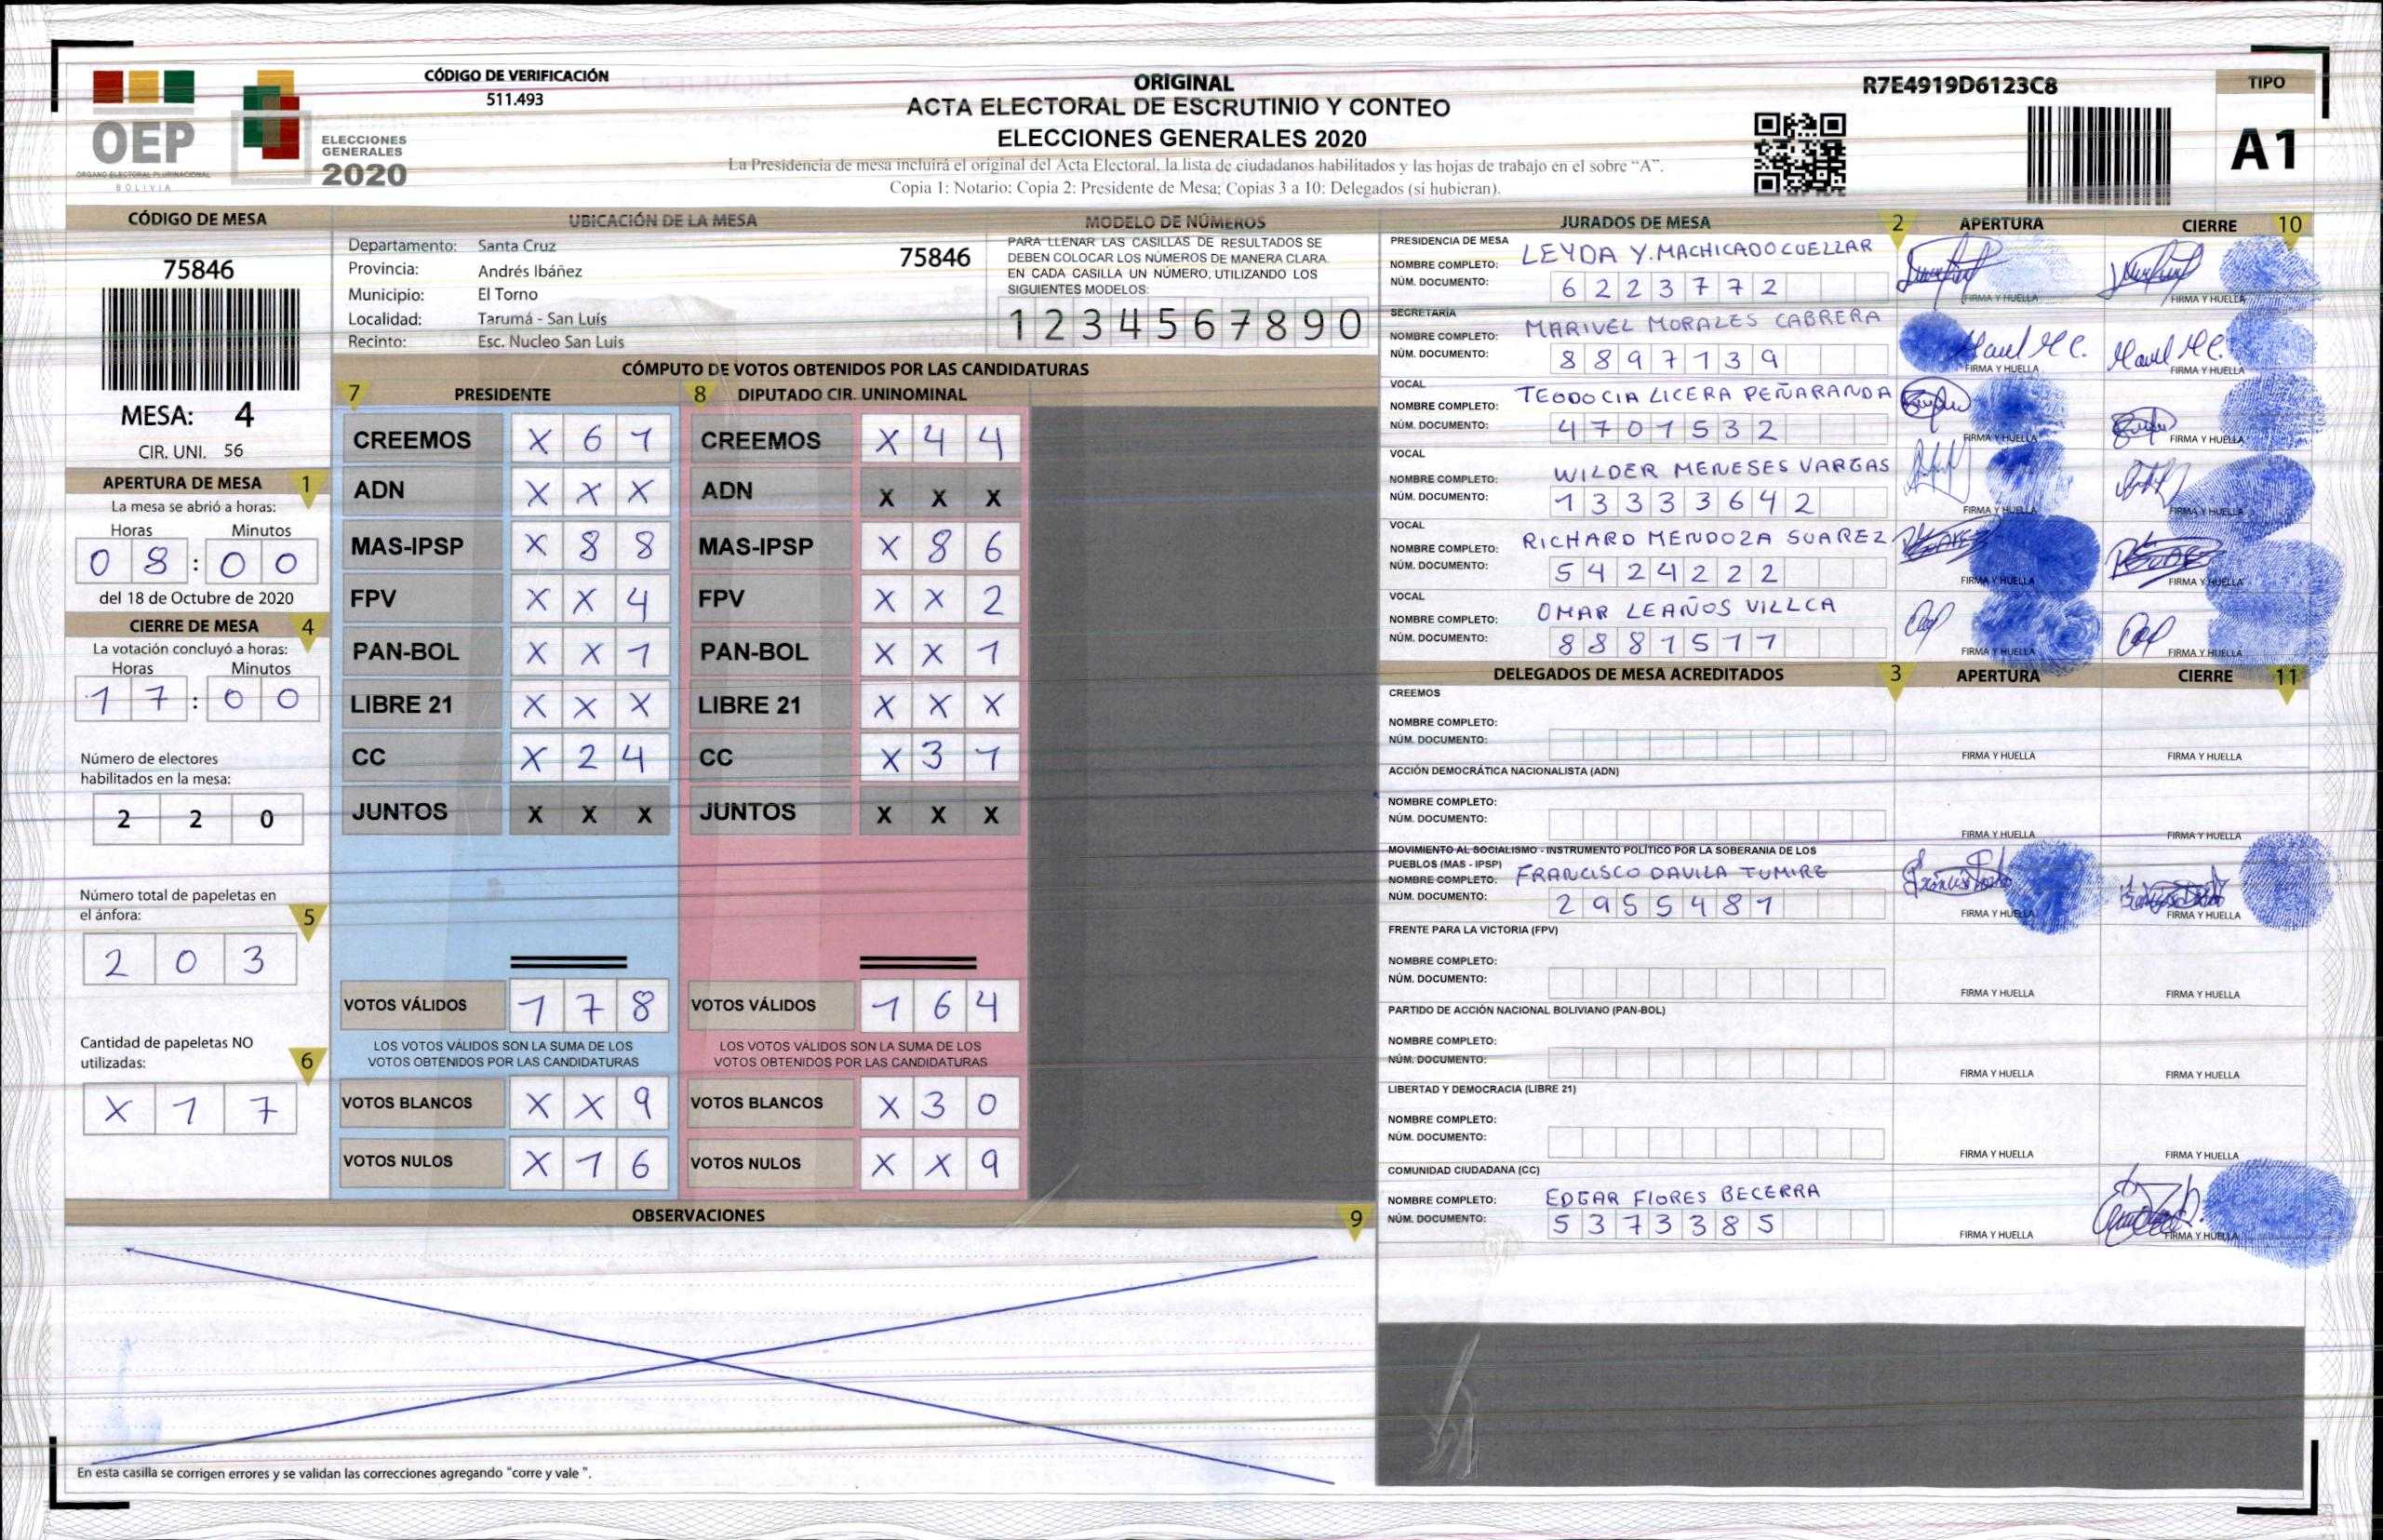 CÓDIGO DE VERIFICACIÓN
511.493
OEP
ÓRGANO ELECTORAL PLURINACIONAL
BOLIVIA
ELECCIONES
GENERALES
2020
ORIGINAL
ACTA ELECTORAL DE ESCRUTINIO Y CONTEO
ELECCIONES GENERALES 2020
La Presidencia de mesa incluirá el original del Acta Electoral, la lista de ciudadanos habilitados y las hojas de trabajo en el sobre “A”.
Copia 1: Notario: Copia 2: Presidente de Mesa; Copias 3 a 10: Delegados (si hubieran).
R7E4919D6123C8
TIPO
A1
CÓDIGO DE MESA
75846
MESA: 4
CIR. UNI. 56
APERTURA DE MESA 1
La mesa se abrió a horas:
Horas Minutos
0 8 : 0 0
del 18 de Octubre de 2020
CIERRE DE MESA 4
La votación concluyó a horas:
Horas Minutos
1 7 : 0 0
Número de electores
habilitados en la mesa:
2 2 0
Número total de papeletas en
el ánfora: 5
2 0 3
Cantidad de papeletas NO
utilizadas: 6
X 1 7
UBICACIÓN DE LA MESA
Departamento: Santa Cruz 75846
Provincia: Andrés Ibáñez
Municipio: El Torno
Localidad: Tarumá - San Luís
Recinto: Esc. Nucleo San Luis
MODELO DE NÚMEROS
PARA LLENAR LAS CASILLAS DE RESULTADOS SE
DEBEN COLOCAR LOS NÚMEROS DE MANERA CLARA.
EN CADA CASILLA UN NÚMERO, UTILIZANDO LOS
SIGUIENTES MODELOS:
1 2 3 4 5 6 7 8 9 0
CÓMPUTO DE VOTOS OBTENIDOS POR LAS CANDIDATURAS
7 PRESIDENTE 8 DIPUTADO CIR. UNINOMINAL
CREEMOS X 6 1 CREEMOS X 4 4
ADN X X X ADN X X X
MAS-IPSP X 8 8 MAS-IPSP X 8 6
FPV X X 4 FPV X X 2
PAN-BOL X X 1 PAN-BOL X X 1
LIBRE 21 X X X LIBRE 21 X X X
CC X 2 4 CC X 3 1
JUNTOS X X X JUNTOS X X X
VOTOS VÁLIDOS 1 7 8 VOTOS VÁLIDOS 1 6 4
LOS VOTOS VÁLIDOS SON LA SUMA DE LOS LOS VOTOS VÁLIDOS SON LA SUMA DE LOS
VOTOS OBTENIDOS POR LAS CANDIDATURAS VOTOS OBTENIDOS POR LAS CANDIDATURAS
VOTOS BLANCOS X X 9 VOTOS BLANCOS X 3 0
VOTOS NULOS X 1 6 VOTOS NULOS X X 9
OBSERVACIONES 9
En esta casilla se corrigen errores y se validan las correcciones agregando "corre y vale ".
JURADOS DE MESA 2 APERTURA CIERRE 10
PRESIDENCIA DE MESA
NOMBRE COMPLETO: LEYDA Y. MACHICADO CUELLAR
NÚM. DOCUMENTO: 6 2 2 3 7 7 2
FIRMA Y HUELLA FIRMA Y HUELLA
SECRETARÍA
NOMBRE COMPLETO: MARIVEL MORALES CABRERA
NÚM. DOCUMENTO: 8 8 9 7 1 3 9
FIRMA Y HUELLA FIRMA Y HUELLA
VOCAL
NOMBRE COMPLETO: TEODOCIA LICERA PEÑARANDA
NÚM. DOCUMENTO: 4 7 0 1 5 3 2
FIRMA Y HUELLA FIRMA Y HUELLA
VOCAL
NOMBRE COMPLETO: WILDER MENESES VARGAS
NÚM. DOCUMENTO: 1 3 3 3 3 6 4 2
FIRMA Y HUELLA FIRMA Y HUELLA
VOCAL
NOMBRE COMPLETO: RICHARD MENDOZA SUAREZ
NÚM. DOCUMENTO: 5 4 2 4 2 2 2
FIRMA Y HUELLA FIRMA Y HUELLA
VOCAL
NOMBRE COMPLETO: OMAR LEAÑOS VILLCA
NÚM. DOCUMENTO: 8 8 8 1 5 1 1
FIRMA Y HUELLA FIRMA Y HUELLA
DELEGADOS DE MESA ACREDITADOS 3 APERTURA CIERRE 11
CREEMOS
NOMBRE COMPLETO:
NÚM. DOCUMENTO:
FIRMA Y HUELLA FIRMA Y HUELLA
ACCIÓN DEMOCRÁTICA NACIONALISTA (ADN)
NOMBRE COMPLETO:
NÚM. DOCUMENTO:
FIRMA Y HUELLA FIRMA Y HUELLA
MOVIMIENTO AL SOCIALISMO - INSTRUMENTO POLÍTICO POR LA SOBERANIA DE LOS
PUEBLOS (MAS - IPSP)
NOMBRE COMPLETO: FRANCISCO DAVILA TUMIRE
NÚM. DOCUMENTO: 2 9 5 5 4 8 1
FIRMA Y HUELLA FIRMA Y HUELLA
FRENTE PARA LA VICTORIA (FPV)
NOMBRE COMPLETO:
NÚM. DOCUMENTO:
FIRMA Y HUELLA FIRMA Y HUELLA
PARTIDO DE ACCIÓN NACIONAL BOLIVIANO (PAN-BOL)
NOMBRE COMPLETO:
NÚM. DOCUMENTO:
FIRMA Y HUELLA FIRMA Y HUELLA
LIBERTAD Y DEMOCRACIA (LIBRE 21)
NOMBRE COMPLETO:
NÚM. DOCUMENTO:
FIRMA Y HUELLA FIRMA Y HUELLA
COMUNIDAD CIUDADANA (CC)
NOMBRE COMPLETO: EDGAR FLORES BECERRA
NÚM. DOCUMENTO: 5 3 7 3 3 8 5
FIRMA Y HUELLA FIRMA Y HUELLA